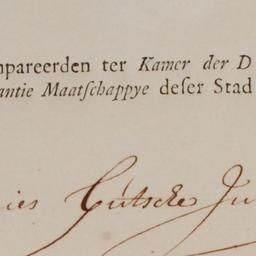 mpareerden ter Kamer der D
antie Maatſchappye deſer Stad
ies Gutscke Ju